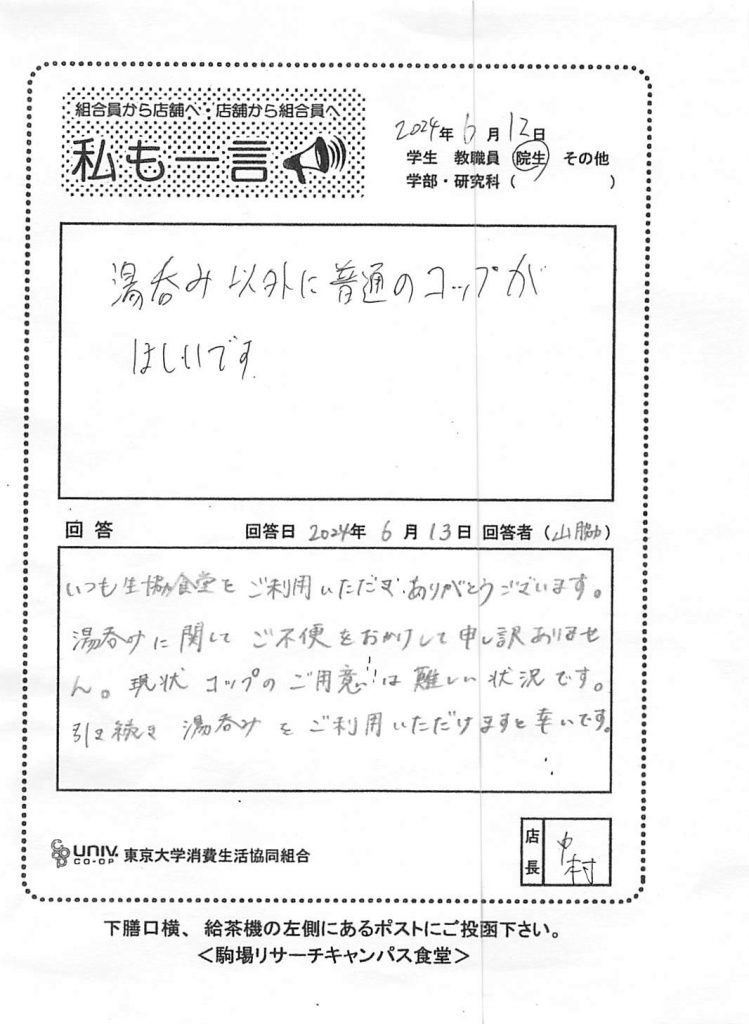 組合員から店舗へ・店舗から組合員へ
私も一言
2024年 6月 12日
学生 教職員 院生 その他
学部・研究科（ ）
湯呑み以外に普通のコップが
ほしいです
回答 回答日 2024年 6月 13日 回答者（山脇）
いつも生協食堂をご利用いただき、ありがとうございます。
湯呑みに関してご不便をおかけして申し訳ありませ
ん。現状コップのご用意は難しい状況です。
引き続き湯呑みをご利用いただけますと幸いです。
店長 中村
UNIV. CO-OP 東京大学消費生活協同組合
下膳口横、給茶機の左側にあるポストにご投函下さい。
＜駒場リサーチキャンパス食堂＞